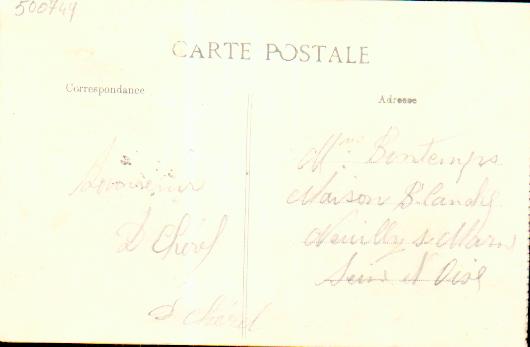 500744
CARTE POSTALE
Correspondance
Adresse
D Chérel
D Chérel
Mme Bontemps
Maison Blanche
Neuilly s Marn
Sein et Oise